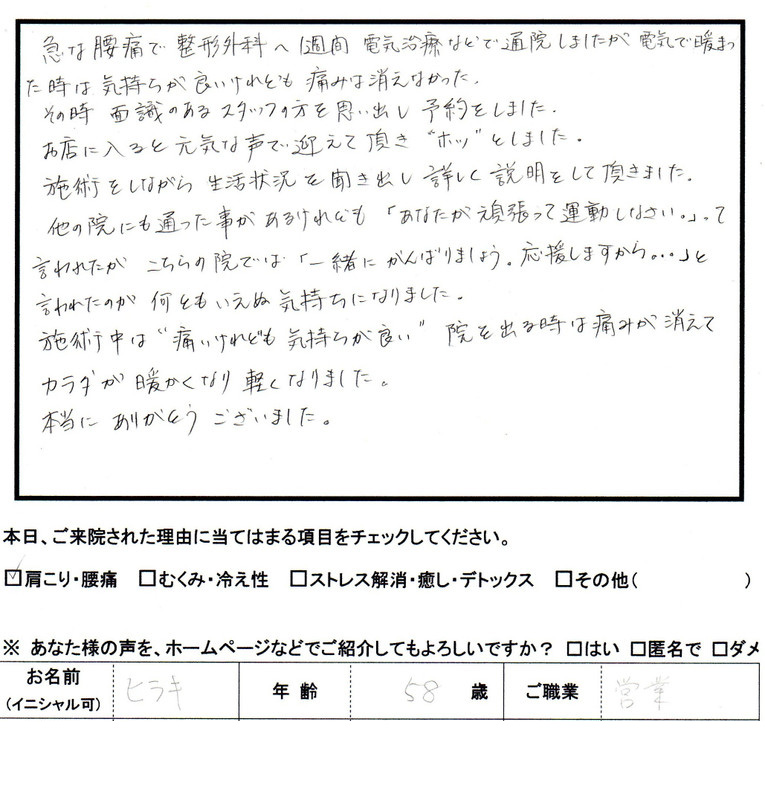 急な腰痛で整形外科へ1週間 電気治療などで通院しましたが電気で暖まっ
た時は気持ちが良いけれども痛みは消えなかった。
その時 面識のあるスタッフの方を思い出し予約をしました。
お店に入ると元気な声で迎えて頂き"ホッ"としました。
施術をしながら生活状況を聞き出し詳しく説明をして頂きました。
他の院にも通った事があるけれども「あなたが頑張って運動しなさい。」って
言われたが こちらの院では「一緒にがんばりましょう。応援しますから。…」と
言われたのが何ともいえぬ気持ちになりました。
施術中は"痛いけれども気持ちが良い" 院を出る時は痛みが消えて
カラダが暖かくなり軽くなりました。
本当に ありがとう ございました。
本日、ご来院された理由に当てはまる項目をチェックしてください。
☑肩こり・腰痛 □むくみ・冷え性 □ストレス解消・癒し・デトックス □その他( )
※ あなた様の声を、ホームページなどでご紹介してもよろしいですか? □はい □匿名で □ダメ
お名前 (イニシャル可) ヒラキ 年齢 58 歳 ご職業 営業